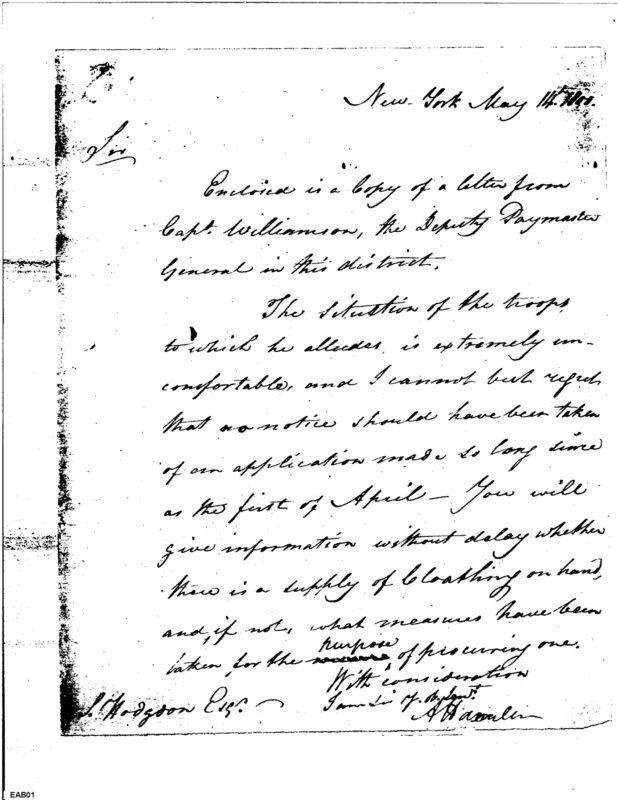 New-York May 14th 1800.
Sir
Enclosed is a Copy of a letter from
Capt. Williamson, the Deputy Paymaster
General in this district.
The situation of the troops
to which he alludes is extremely un-
comfortable, and I cannot but regret
that no notice should have been taken
of an application made so long since
as the first of April — You will
give information without delay whether
there is a supply of Cloathing on hand,
and, if not, what measures have been
purpose
taken for the of procuring one.
With consideration
I am Sir Yr. Ob. Servt.
S. Hodgdon Esqr. A Hamilton
EAB01